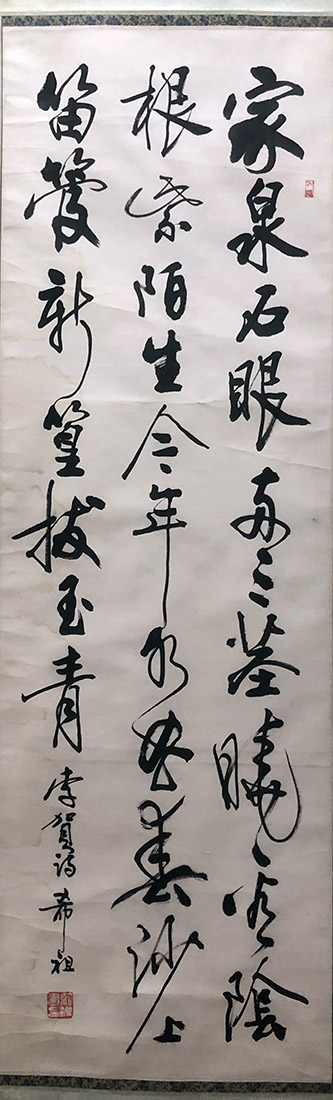 家泉石眼兩三莖曉看陰
根紫陌生今年水曲春沙上
笛管新篁拔玉青
李賀詩 希祖